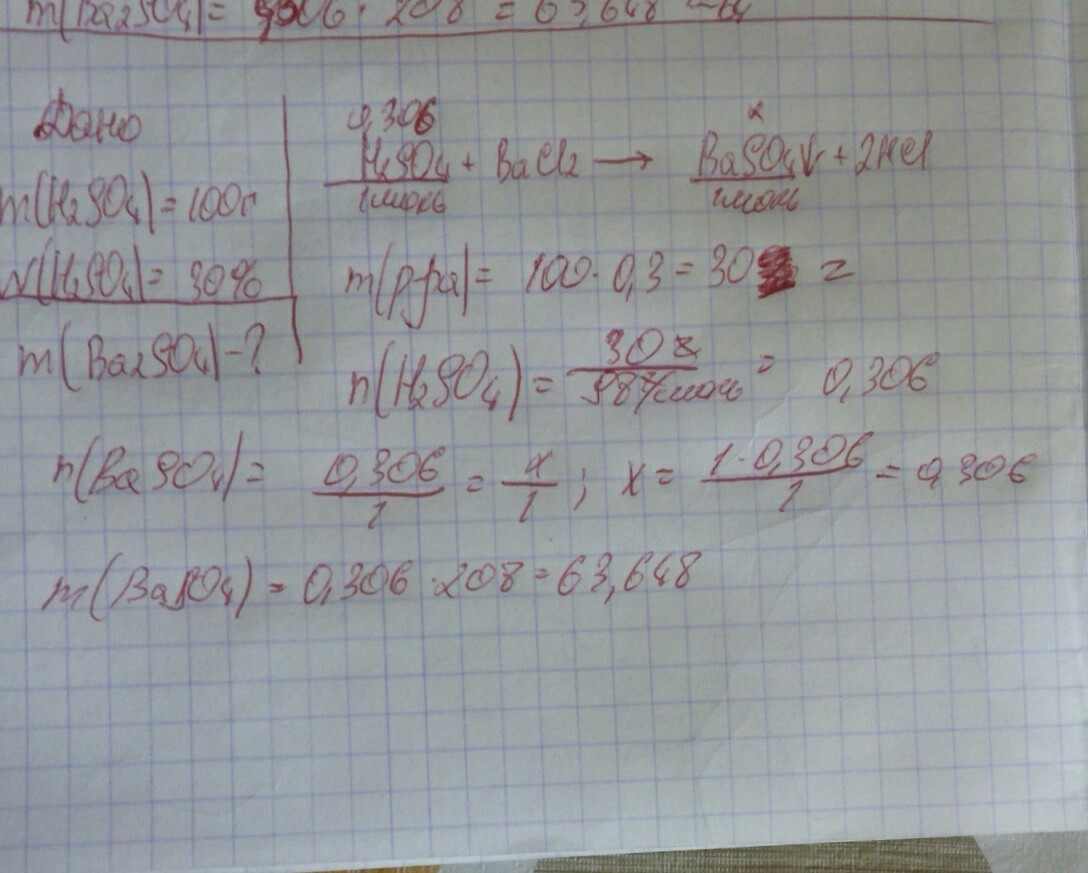 m(Ba2SO4)= 0,306 · 208 = 63,648 ~64
Дано
m(H2SO4)=100г
W(H2SO4)= 30%
m(Ba2SO4)-?
0,306 x
H2SO4 + BaCl2 → BaSO4↓ + 2HCl
1моль 1моль
m(р-ра)= 100 · 0,3 = 30 =
n(H2SO4) = 30г / 98г/моль = 0,306
n(BaSO4)= 0,306/1 = x/1 ; x = 1·0,306/1 = 0,306
m(BaSO4) = 0,306 · 208 = 63,648